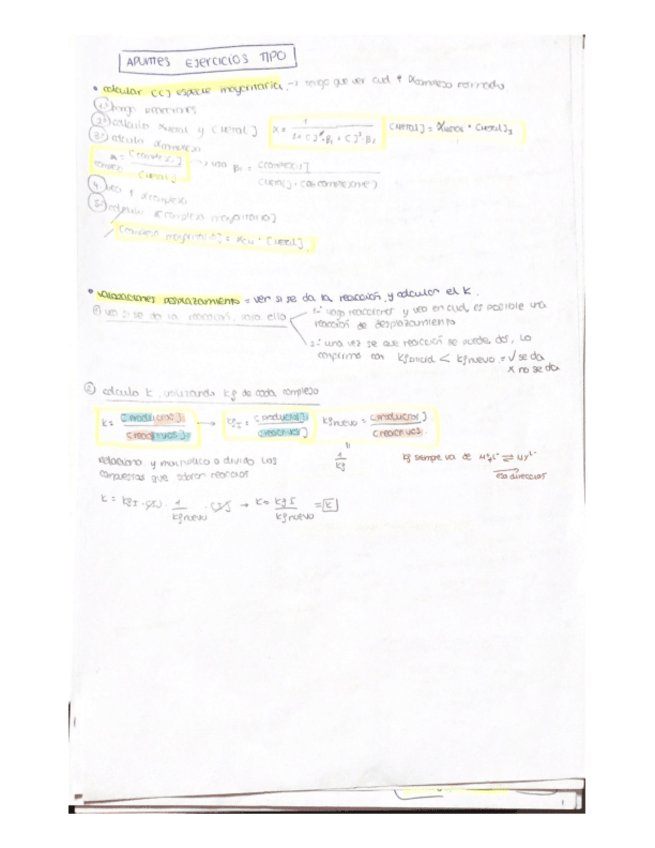 APUNTES EJERCICIOS TIPO
• calcular [C] especie mayoritaria. → tengo que ver cual + αcomplejo formado
1º pongo reacciones
2º calculo αmetal y [metal] α = 1 / 1 + [ ]·β1 + [ ]²·β2 [metal] = αmetal · [metal]
3º calculo αcomplejo
α = [complejo] / [metal] → uso β1 = [complejo] / [metal]·[
4 veo + αcomplejo
5º calculo [complejo mayoritario]
[complejo mayoritario] = · [metal].
• valoraciones desplazamiento = ver si se da la reacción, y calcular el K.
① veo si se da la reacción, para ello
1º: hago reacciones y veo en cual es posible una
reacción de desplazamiento
2º: una vez se que reacción se puede dar, lo
confirmo con Kf inicial < Kf nuevo = √ se da
x no se da
② calculo K, utilizando Kf de cada complejo
K = [productos] / [reactivos] → Kf I = [productos] / [reactivos] Kf nuevo = [productos] / [reactivos].
1 / Kf
Kf siempre va de ⇌
esa dirección
Relaciono y multiplico o divido los
compuestos que sobran
K = Kf I · · 1 / Kf nuevo · → K = Kf I / Kf nuevo = K
1